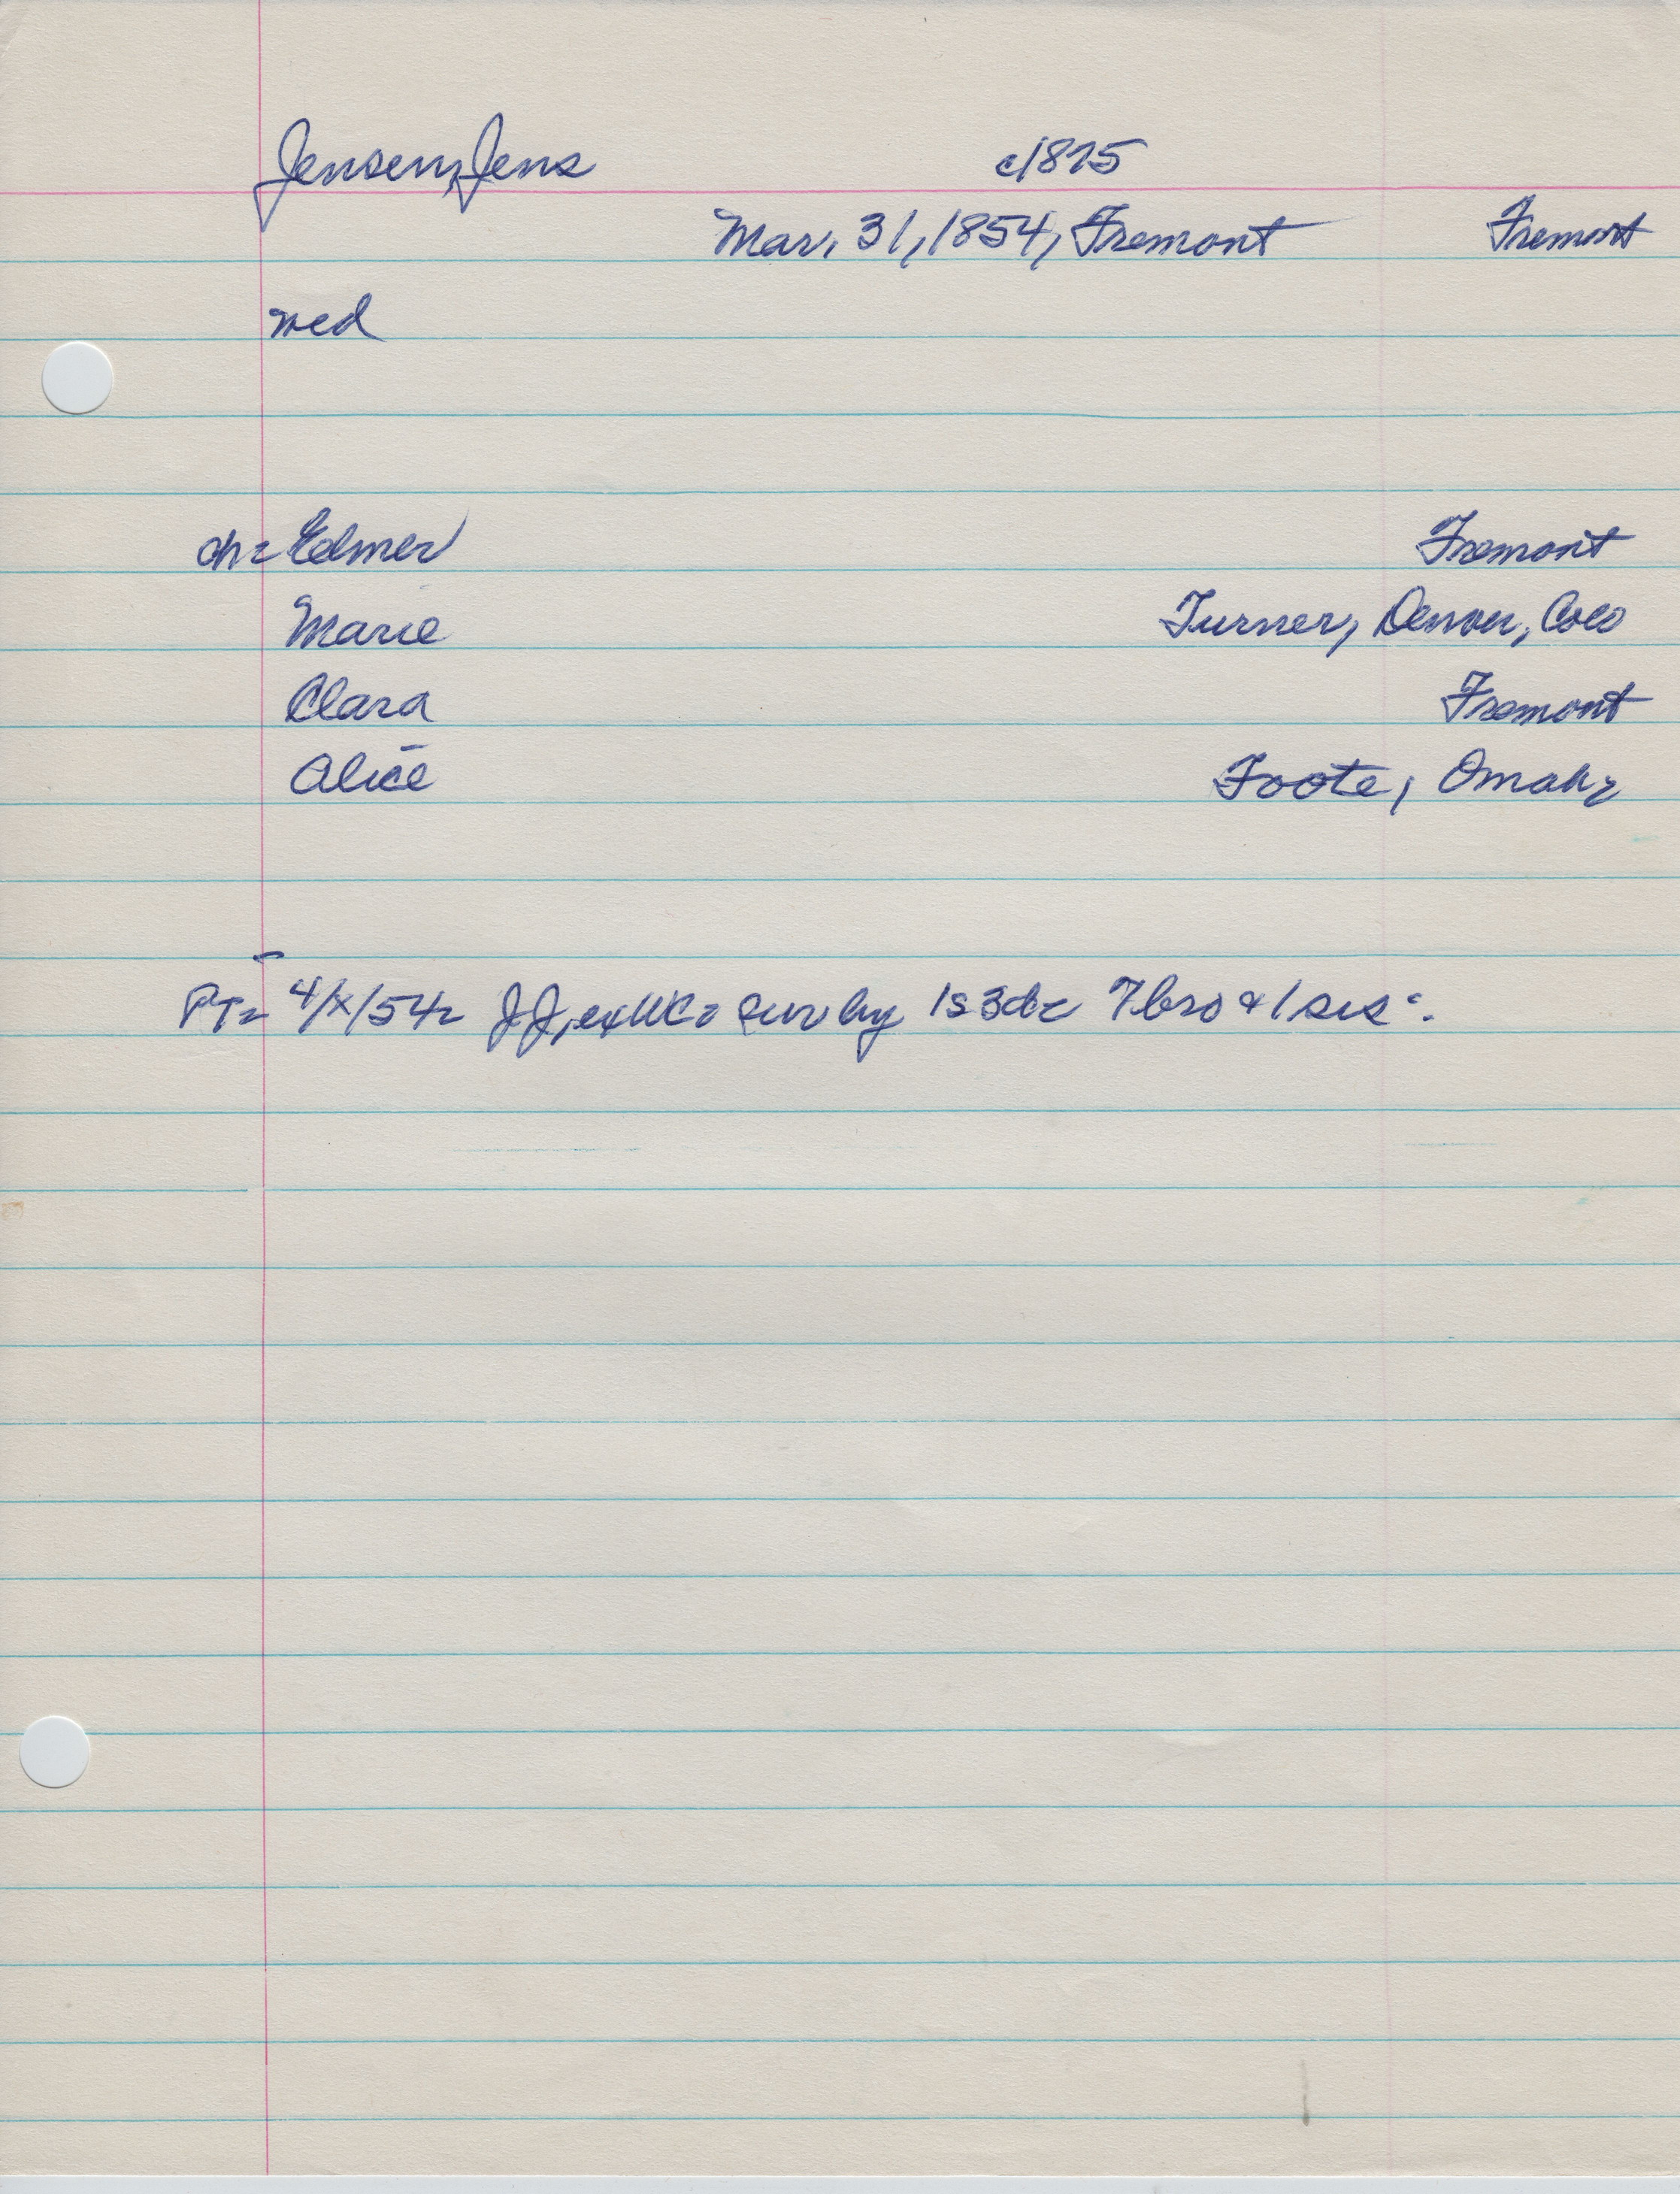 Jensen, Jens c1875
Mar. 31, 1854, Fremont Fremont
wed
ch- Elmer Fremont
Marie Turner, Denver, Colo
Clara Fremont
Alice Foote, Omaha
PT- 4/x/54- JJ, ex WC- sur by 1s 3d- 7 bro & 1 sis-.